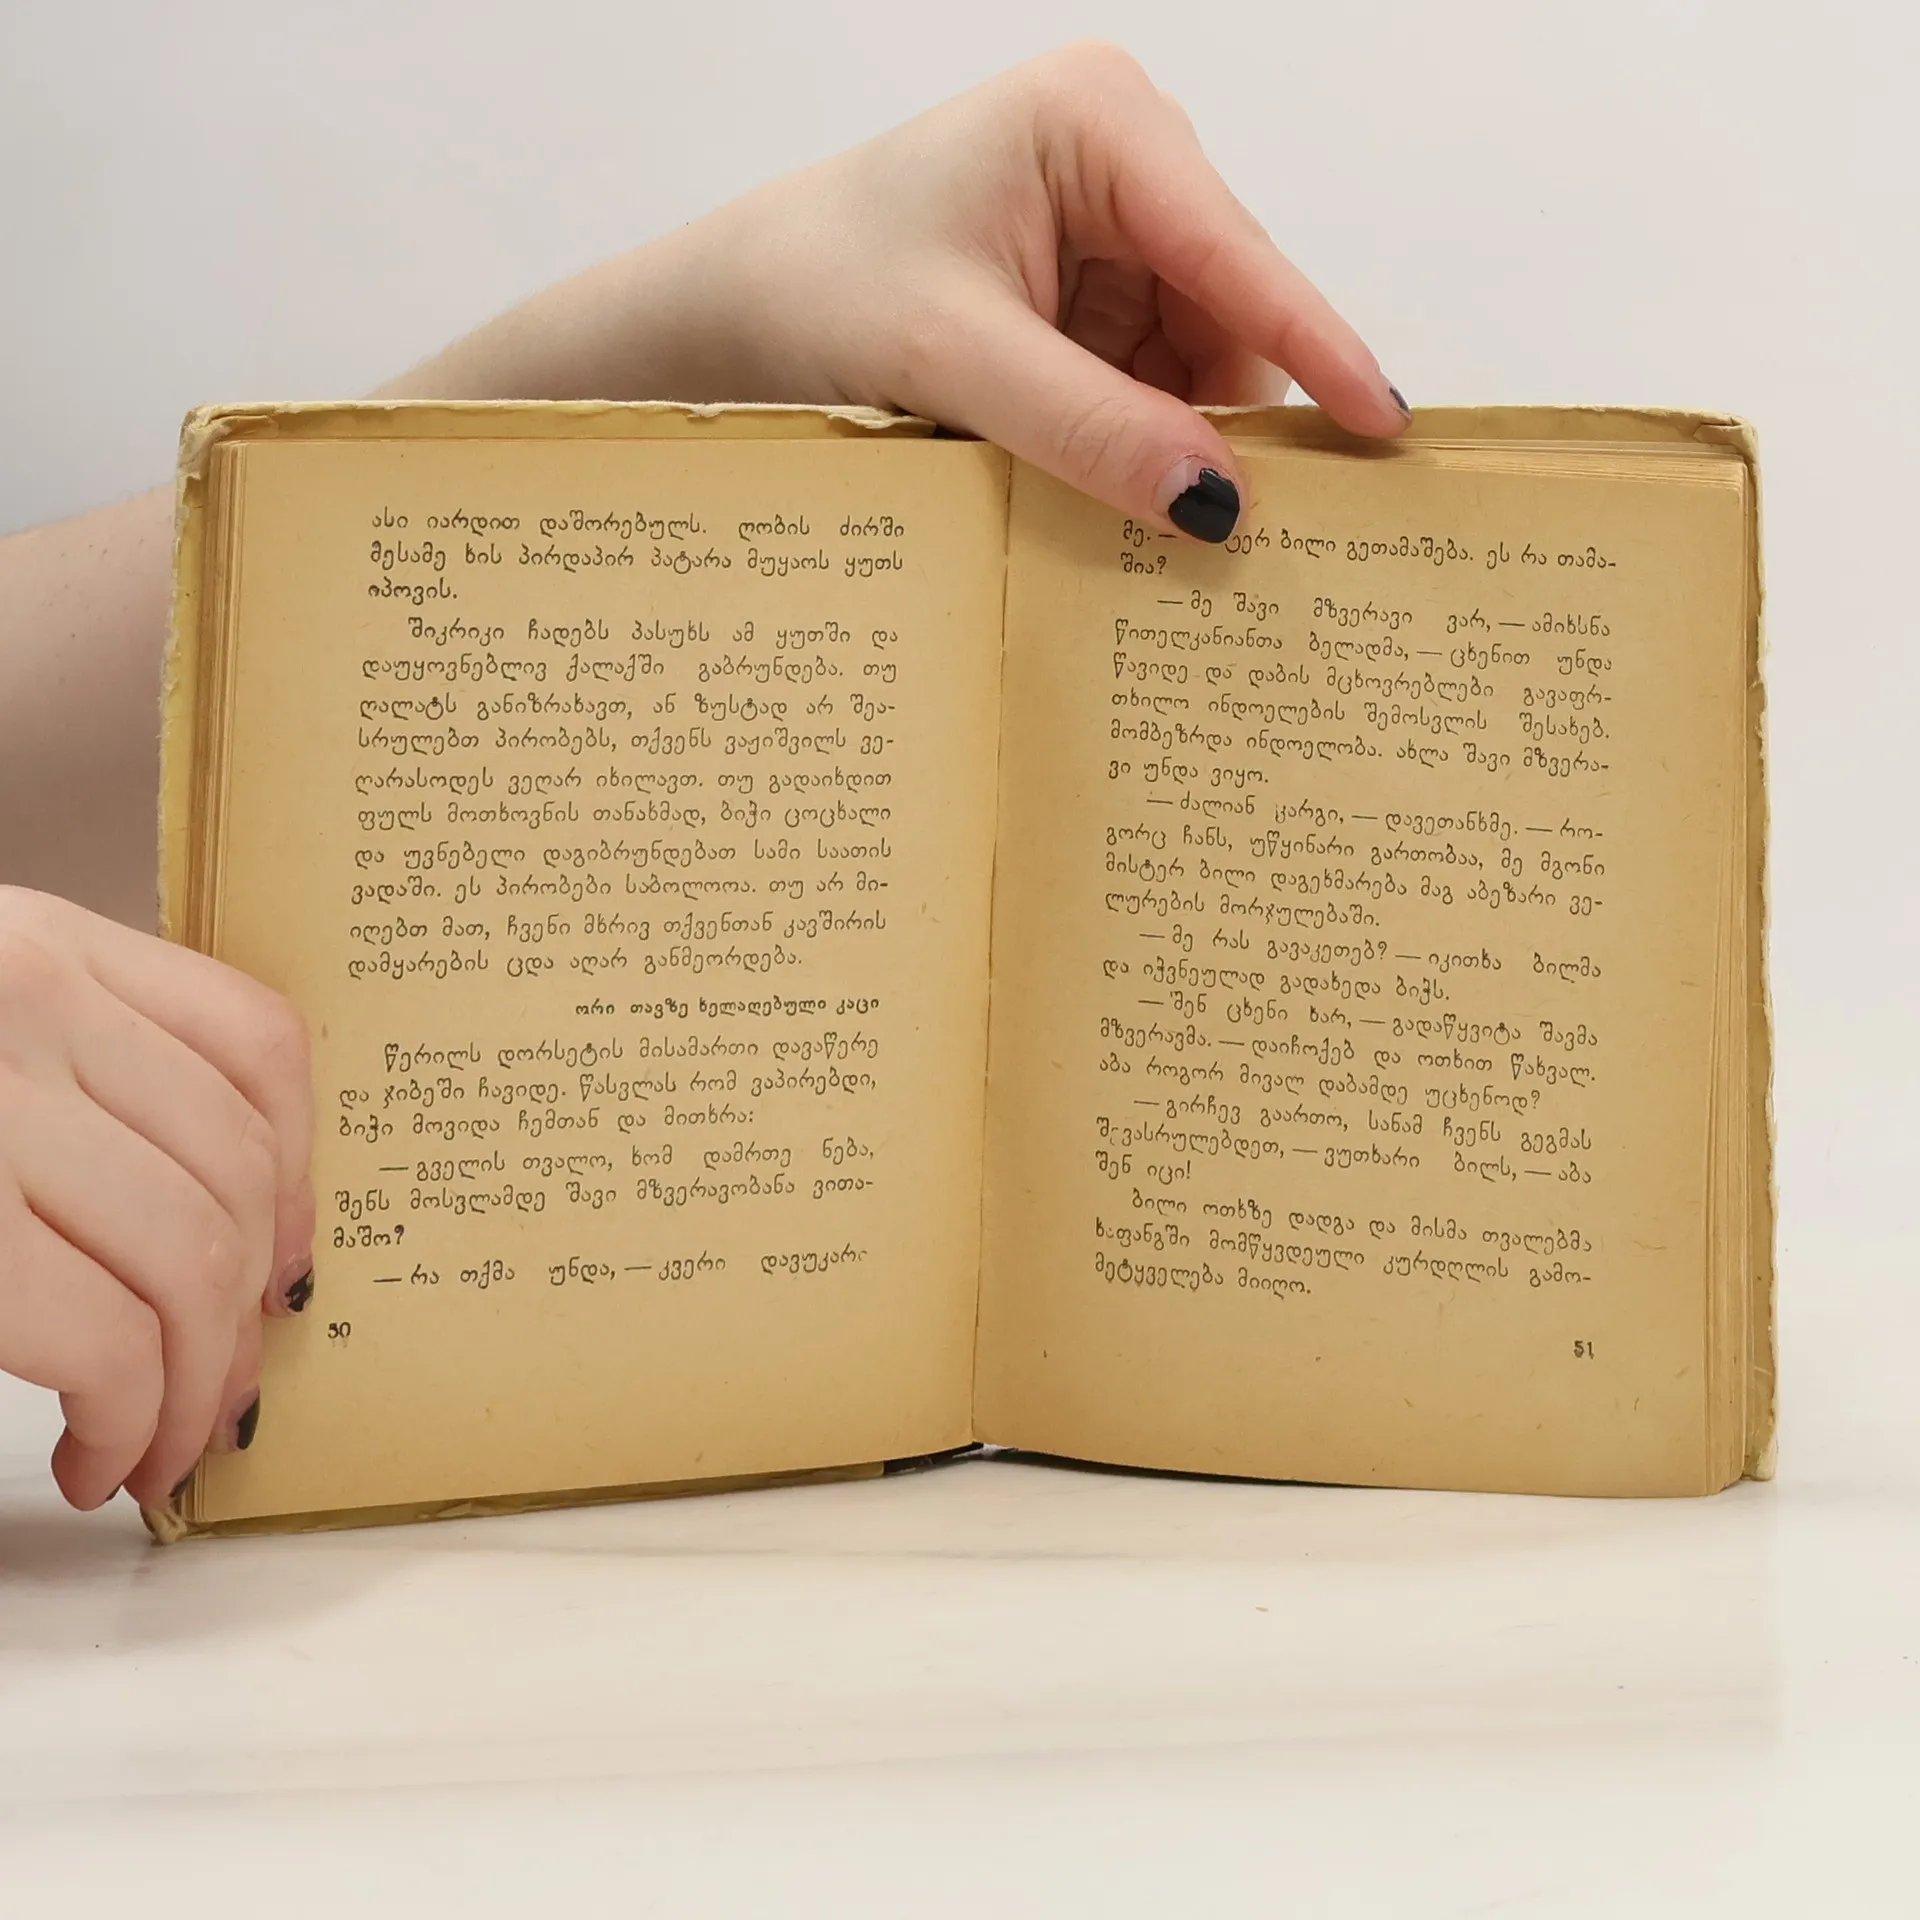 ასი იარდით დაშორებულს. ღობის ძირში
მესამე ხის პირდაპირ პატარა მუყაოს ყუთს
იპოვის.
შიკრიკი ჩადებს პასუხს ამ ყუთში და
დაუყოვნებლივ ქალაქში გაბრუნდება. თუ
ღალატს განიზრახავთ, ან ზუსტად არ შეა-
სრულებთ პირობებს, თქვენს ვაჟიშვილს ვე-
ღარასოდეს ვეღარ იხილავთ. თუ გადაიხდით
ფულს მოთხოვნის თანახმად, ბიჭი ცოცხალი
და უვნებელი დაგიბრუნდებათ სამი საათის
ვადაში. ეს პირობები საბოლოოა. თუ არ მი-
იღებთ მათ, ჩვენი მხრივ თქვენთან კავშირის
დამყარების ცდა აღარ განმეორდება.
ორი თავზე ხელაღებული კაცი
წერილს დორსეტის მისამართი დავაწერე
და ჯიბეში ჩავიდე. წასვლას რომ ვაპირებდი,
ბიჭი მოვიდა ჩემთან და მითხრა:
— გველის თვალო, ხომ დამრთე ნება,
შენს მოსვლამდე შავი მზვერავობანა ვითა-
მაშო?
— რა თქმა უნდა, — კვერი დავუკარ
50
მე. — ბილი გეთამაშება. ეს რა თამა-
შია?
— მე შავი მზვერავი ვარ, — ამიხსნა
წითელკანიანთა ბელადმა, — ცხენით უნდა
წავიდე და დაბის მცხოვრებლები გავაფრ-
თხილო ინდოელების შემოსვლის შესახებ.
მომბეზრდა ინდოელობა. ახლა შავი მზვერა-
ვი უნდა ვიყო.
— ძალიან კარგი, — დავეთანხმე. — რო-
გორც ჩანს, უწყინარი გართობაა, მე მგონი
მისტერ ბილი დაგეხმარება მაგ აბეზარი ვე-
ლურების მორჯულებაში.
— მე რას გავაკეთებ? — იკითხა ბილმა
და იჭვნეულად გადახედა ბიჭს.
— შენ ცხენი ხარ, — გადაწყვიტა შავმა
მზვერავმა. — დაიჩოქებ და ოთხით წახვალ.
აბა როგორ მივალ დაბამდე უცხენოდ?
— გირჩევ გაართო, სანამ ჩვენს გეგმას
შევასრულებდეთ, — ვუთხარი ბილს, — აბა
შენ იცი!
ბილი ოთხზე დადგა და მისმა თვალებმა
ხაფანგში მომწყვდეული კურდღლის გამო-
მეტყველება მიიღო.
51